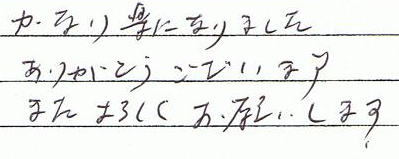 かなり楽になりました
ありがとうございます
またよろしくお願いします